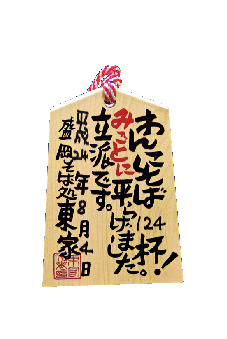 わんこそば124杯!
みごとに平らげました。
立派です。
平成24年8月4日
盛岡そば処東家